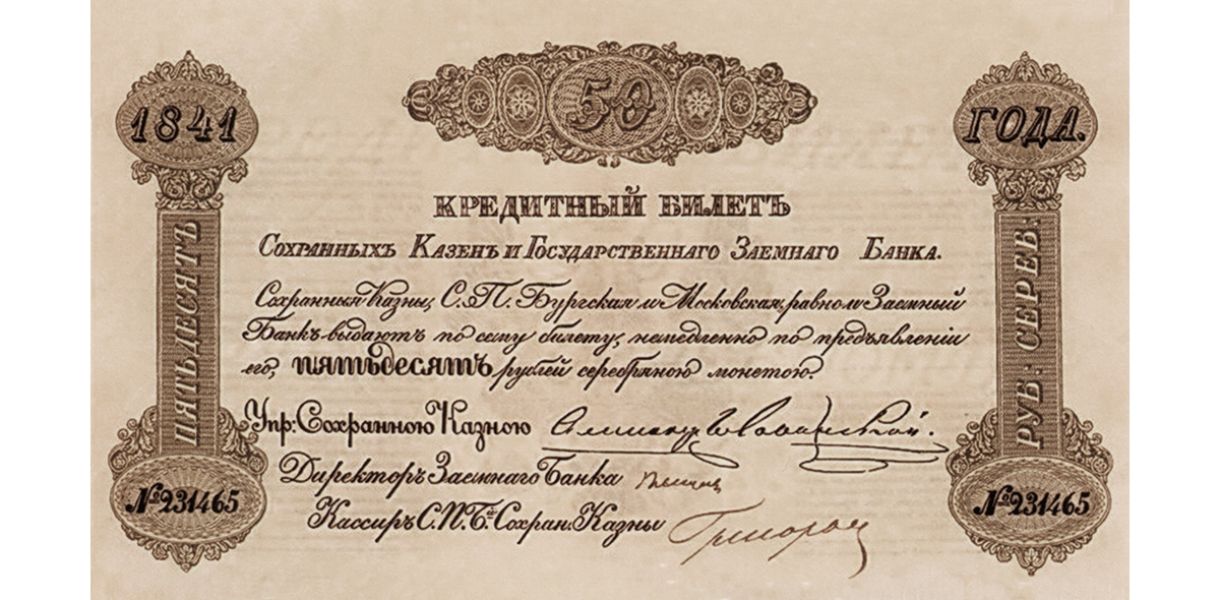 1841
50
ГОДА.
КРЕДИТНЫЙ БИЛЕТЪ
СОХРАННЫХЪ КАЗЕНЪ И ГОСУДАРСТВЕННАГО ЗАЕМНАГО БАНКА.
Сохранныя Казны, С. П. Бургская и Московская, равно и Заемный
Банкъ выдаютъ по сему билету, немедленно по предъявленіи
его, пятьдесятъ рублей серебряною монетою.
Упр: Сохранною Казною
Директоръ Заемнаго Банка
Кассиръ С. П. Б.ой Сохран. Казны
ПЯТЬДЕСЯТЪ
РУБ: СЕРЕБ:
№ 231465
№ 231465